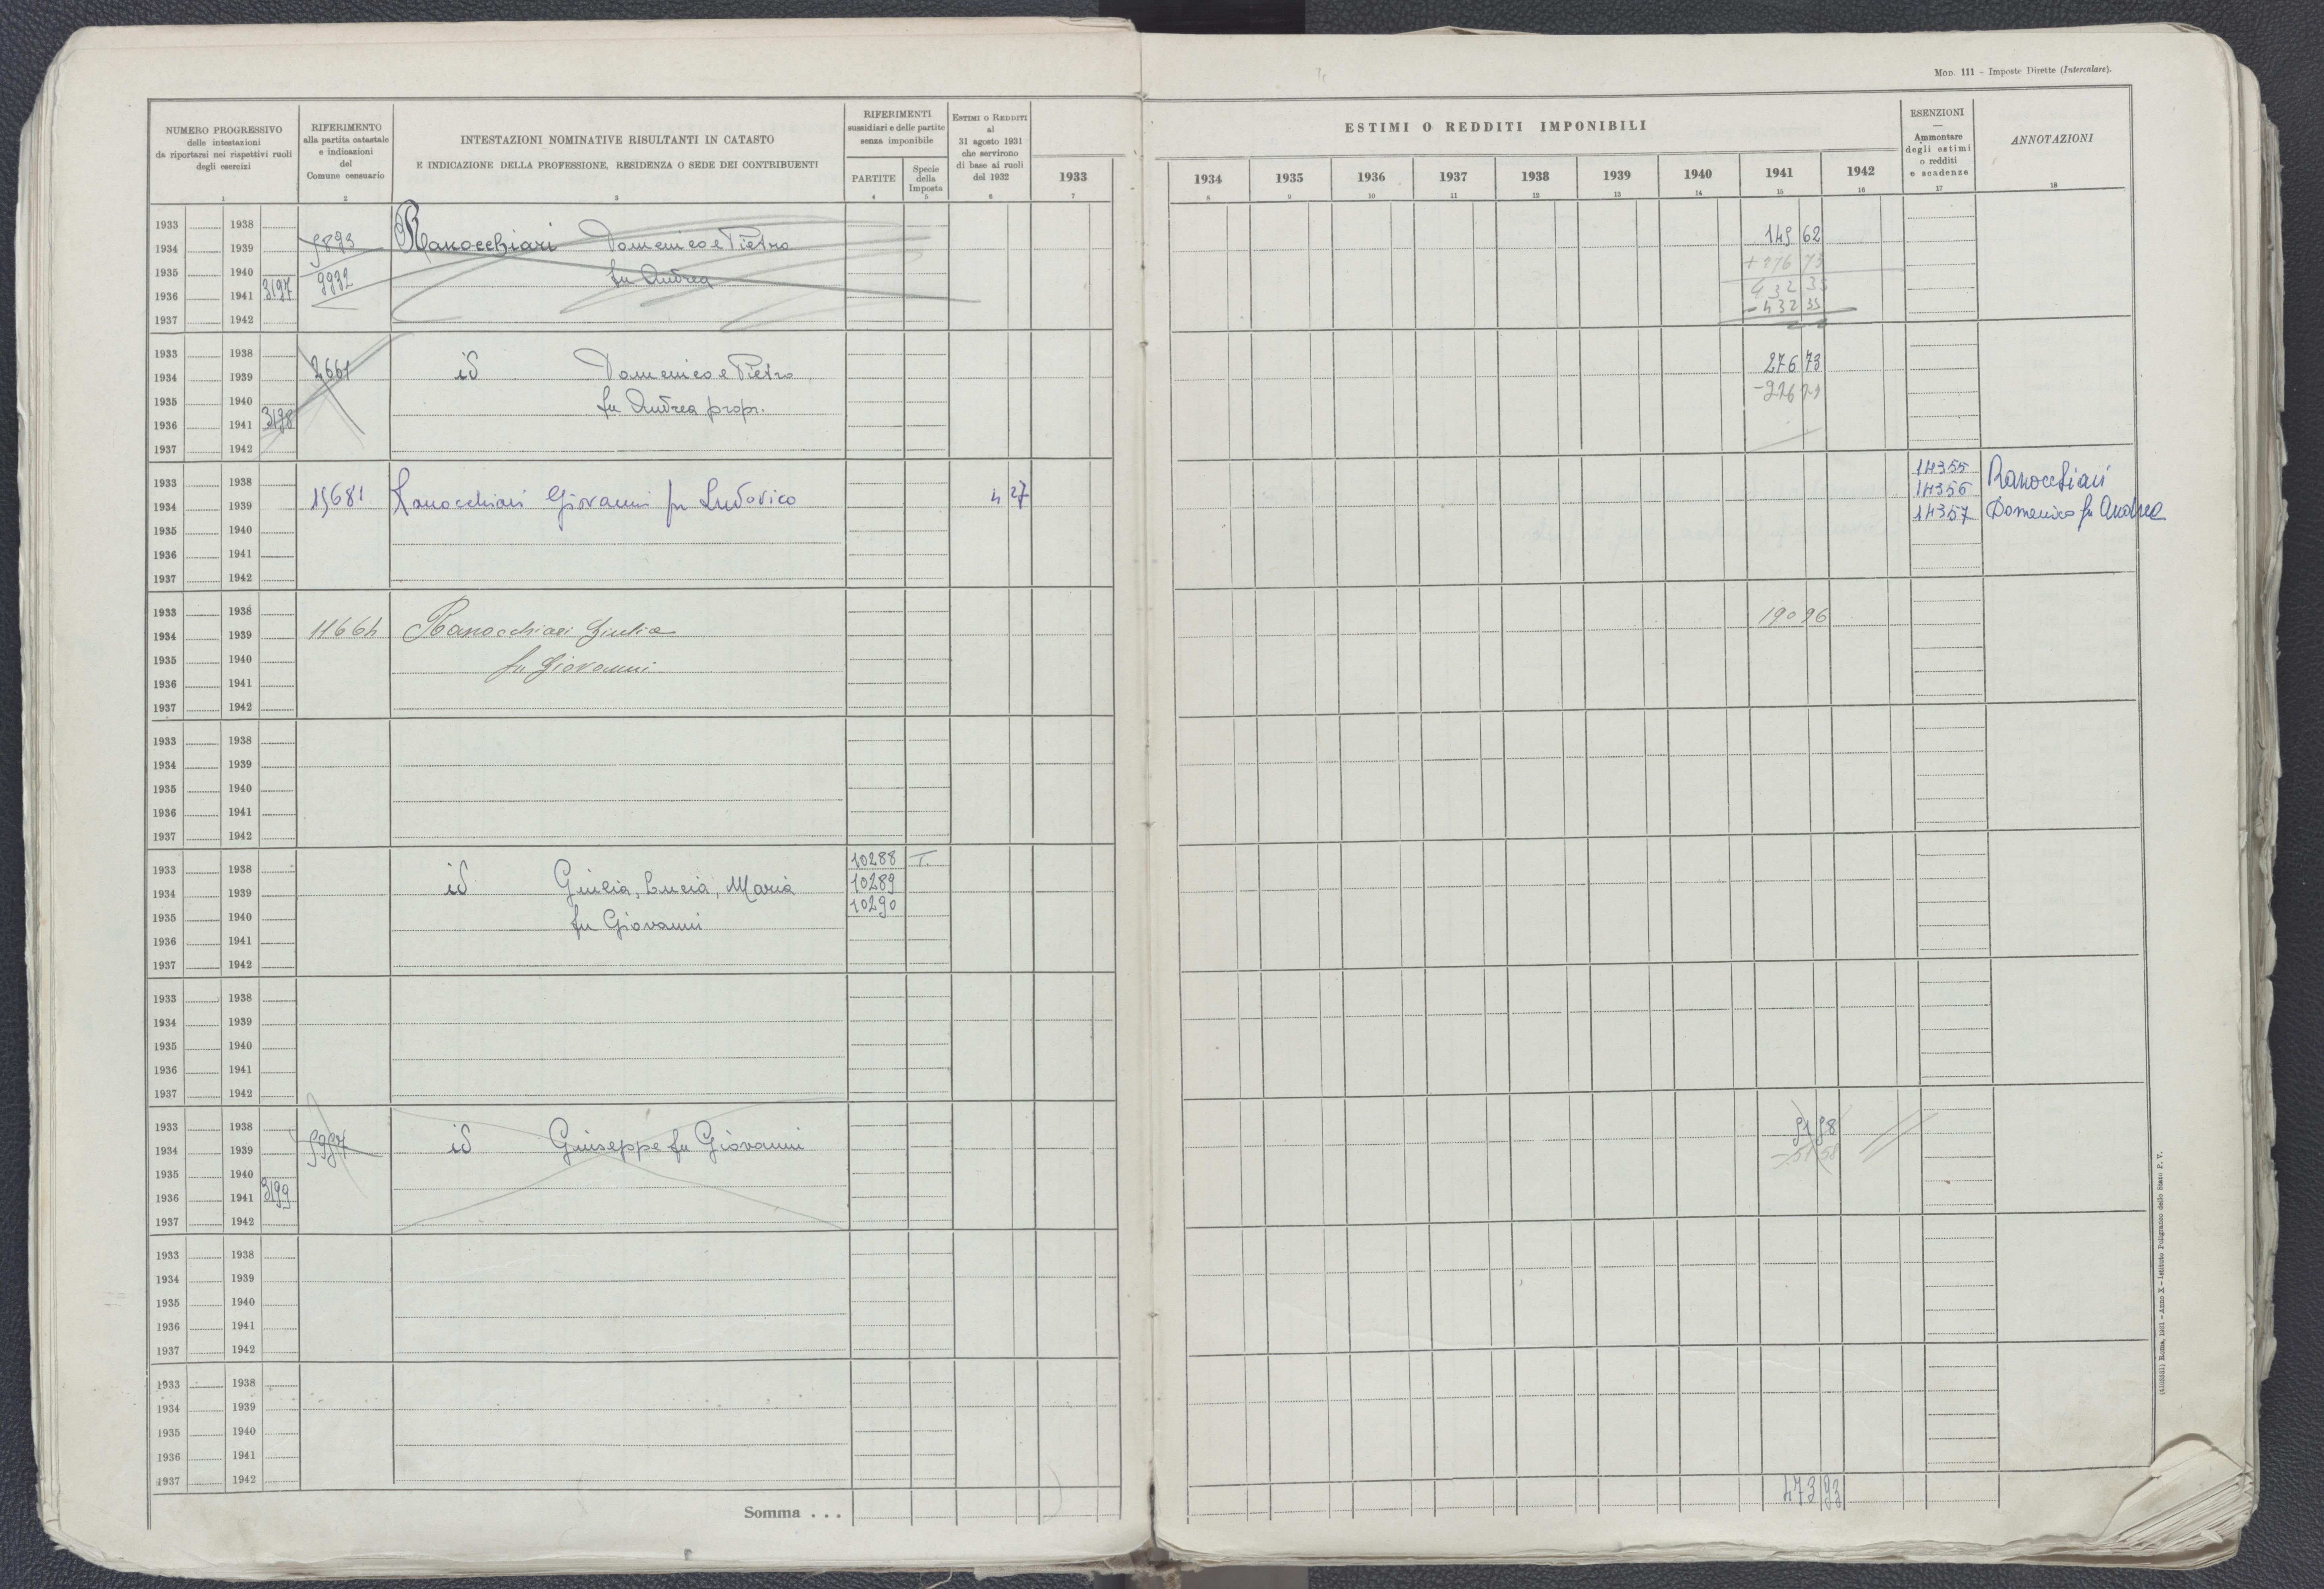 MOD. 111 – Imposte Dirette (Intercalare).
NUMERO PROGRESSIVO
delle intestazioni
da riportarsi nei rispettivi ruoli
degli esercizi
1
RIFERIMENTO
alla partita catastale
e indicazioni
del
Comune censuario
2
INTESTAZIONI NOMINATIVE RISULTANTI IN CATASTO
E INDICAZIONE DELLA PROFESSIONE, RESIDENZA O SEDE DEI CONTRIBUENTI
3
RIFERIMENTI
sussidiari e delle partite
senza imponibile
PARTITE
4
Specie
della
Imposta
5
ESTIMI O REDDITI
al
31 agosto 1931
che servirono
di base ai ruoli
del 1932
6
ESTIMI O REDDITI IMPONIBILI
1933 1934 1935 1936 1937 1938 1939 1940 1941 1942
7 8 9 10 11 12 13 14 15 16
ESENZIONI
—
Ammontare
degli estimi
o redditi
e scadenze
17
ANNOTAZIONI
18
1933 1938
1934 1939 5893 Ranocchiari Domenico e Pietro 149 62
1935 1940 9932 fu Andrea + 276 73
1936 1941 3197 432 35
1937 1942 - 432 35
1933 1938
1934 1939 7661 id Domenico e Pietro 276 73
1935 1940 fu Andrea propr.
1936 1941 3198
1937 1942
1933 1938 14355 Ranocchiari
1934 1939 15681 Ranocchiari Giovanni fu Ludovico 4 27 14356
1935 1940 14357 Domenico fu Andrea
1936 1941
1937 1942
1933 1938
1934 1939 11664 Ranocchiari Giulia 190 96
1935 1940 fu Giovanni
1936 1941
1937 1942
1933 1938
1934 1939
1935 1940
1936 1941
1937 1942
1933 1938 10288 T.
1934 1939 id Giulia, Lucia, Maria 10289
1935 1940 fu Giovanni 10290
1936 1941
1937 1942
1933 1938
1934 1939
1935 1940
1936 1941
1937 1942
1933 1938
1934 1939 id Giuseppe fu Giovanni
1935 1940
1936 1941 3199
1937 1942
1933 1938
1934 1939
1935 1940
1936 1941
1937 1942
1933 1938
1934 1939
1935 1940
1936 1941
1937 1942
Somma . . . 473 93
(4105561) Roma, 1931 – Anno X – Istituto Poligrafico dello Stato P. V.